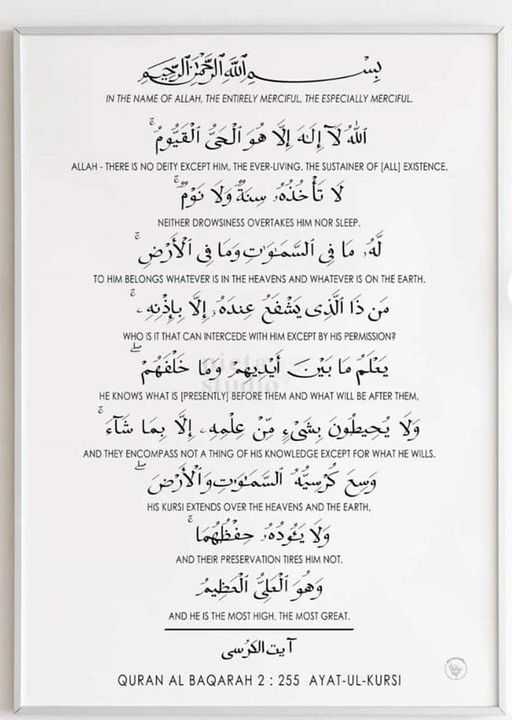 بِسْمِ اللَّهِ الرَّحْمَٰنِ الرَّحِيمِ
IN THE NAME OF ALLAH, THE ENTIRELY MERCIFUL, THE ESPECIALLY MERCIFUL.
اللَّهُ لَآ إِلَٰهَ إِلَّا هُوَ الْحَيُّ الْقَيُّومُ ۚ
ALLAH - THERE IS NO DEITY EXCEPT HIM, THE EVER-LIVING, THE SUSTAINER OF [ALL] EXISTENCE.
لَا تَأْخُذُهُۥ سِنَةٌ وَلَا نَوْمٌ ۚ
NEITHER DROWSINESS OVERTAKES HIM NOR SLEEP.
لَّهُۥ مَا فِى السَّمَٰوَٰتِ وَمَا فِى الْأَرْضِ ۗ
TO HIM BELONGS WHATEVER IS IN THE HEAVENS AND WHATEVER IS ON THE EARTH.
مَن ذَا الَّذِى يَشْفَعُ عِندَهُۥٓ إِلَّا بِإِذْنِهِۦ ۚ
WHO IS IT THAT CAN INTERCEDE WITH HIM EXCEPT BY HIS PERMISSION?
يَعْلَمُ مَا بَيْنَ أَيْدِيهِمْ وَمَا خَلْفَهُمْ ۖ
studio
HE KNOWS WHAT IS [PRESENTLY] BEFORE THEM AND WHAT WILL BE AFTER THEM,
وَلَا يُحِيطُونَ بِشَىْءٍ مِّنْ عِلْمِهِۦٓ إِلَّا بِمَا شَآءَ ۚ
AND THEY ENCOMPASS NOT A THING OF HIS KNOWLEDGE EXCEPT FOR WHAT HE WILLS.
وَسِعَ كُرْسِيُّهُ السَّمَٰوَٰتِ وَالْأَرْضَ ۖ
HIS KURSI EXTENDS OVER THE HEAVENS AND THE EARTH,
وَلَا يَـُٔودُهُۥ حِفْظُهُمَا ۚ
AND THEIR PRESERVATION TIRES HIM NOT.
وَهُوَ الْعَلِىُّ الْعَظِيمُ
AND HE IS THE MOST HIGH, THE MOST GREAT.
آيت الكرسى
QURAN AL BAQARAH 2 : 255 AYAT-UL-KURSI